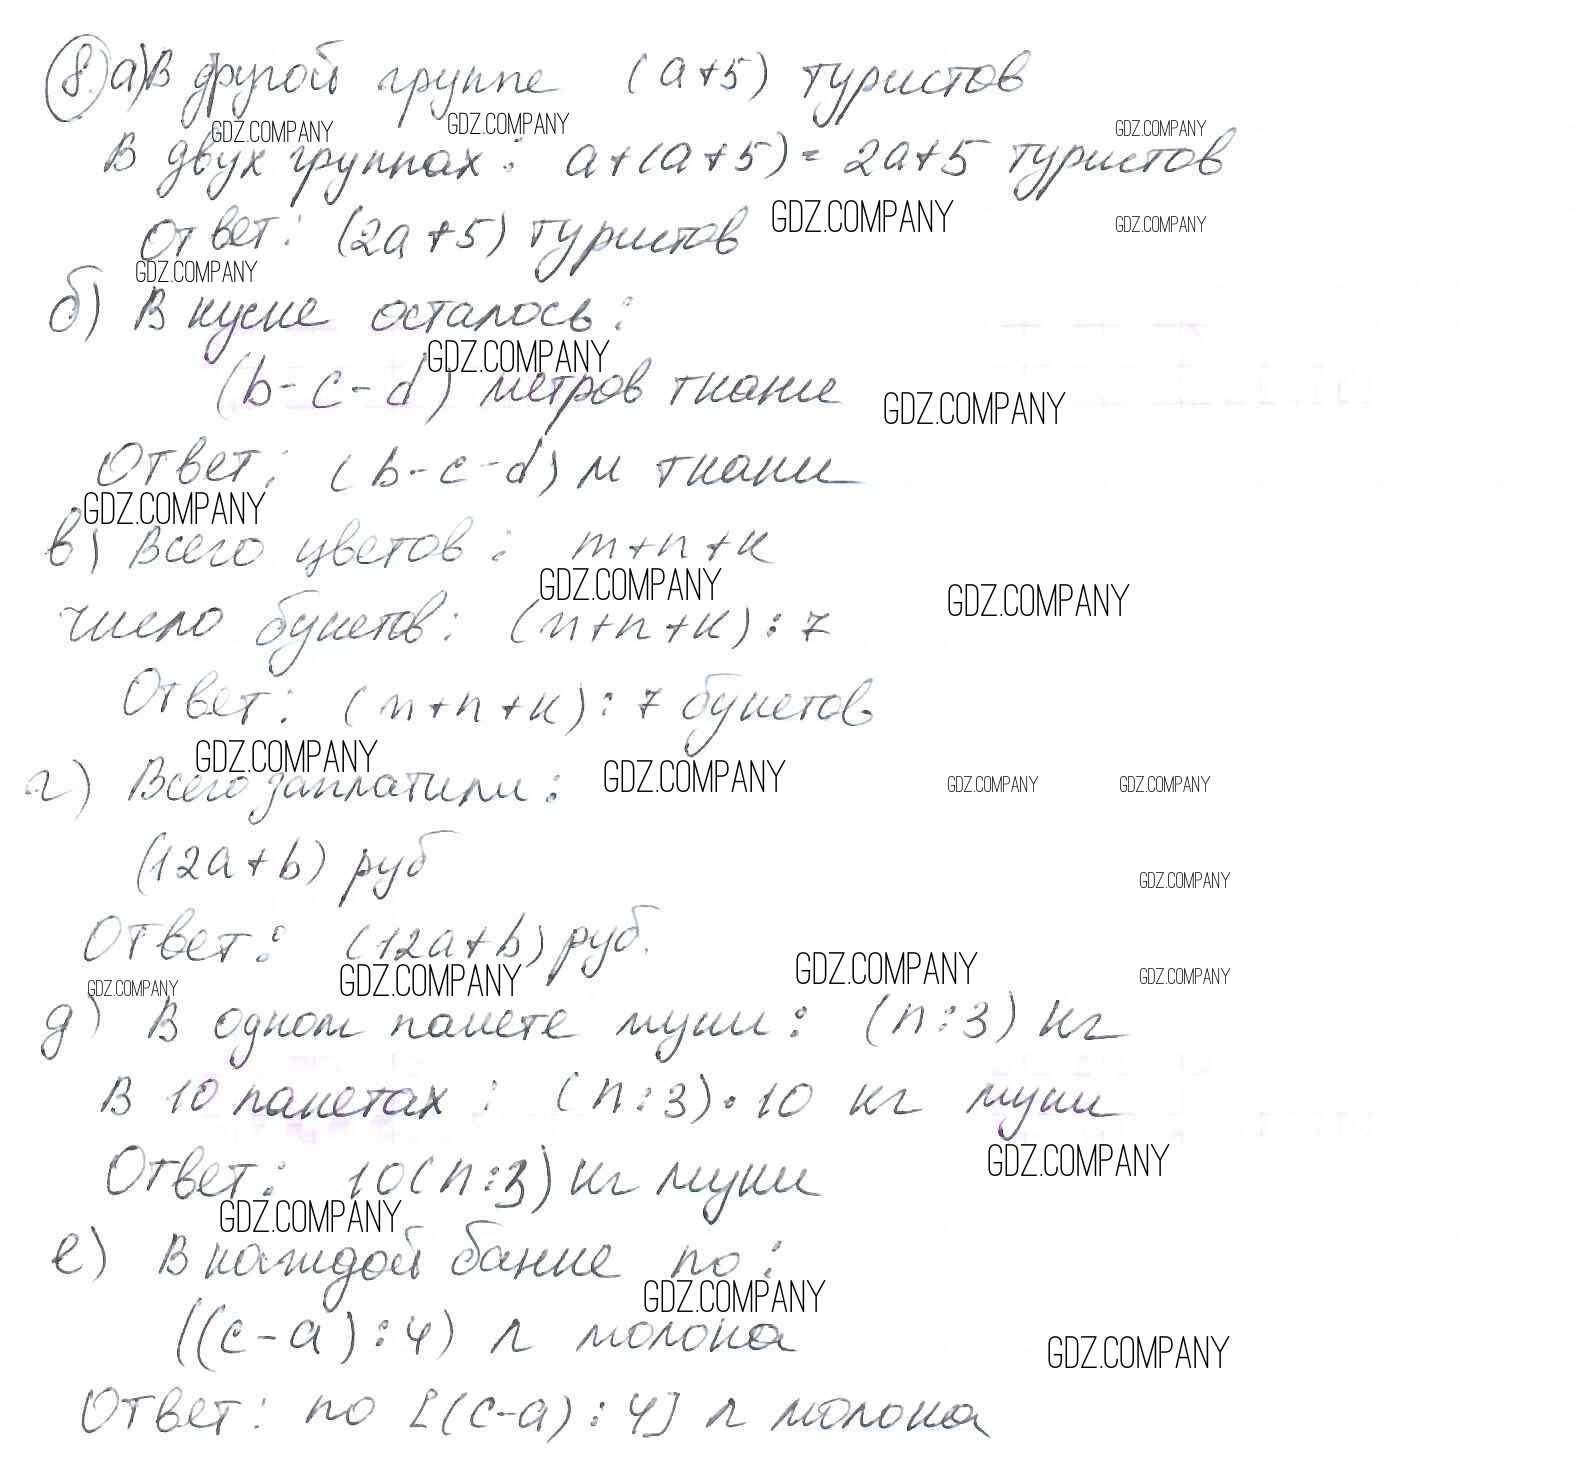 8. а) В другой группе (a+5) туристов
GDZ.COMPANY GDZ.COMPANY GDZ.COMPANY
В двух группах: a+(a+5)=2a+5 туристов
GDZ.COMPANY GDZ.COMPANY
Ответ: (2a+5) туристов
GDZ.COMPANY
б) В куске осталось:
GDZ.COMPANY
(b-c-d) метров ткани
GDZ.COMPANY
Ответ: (b-c-d) м ткани
GDZ.COMPANY
в) Всего цветов: m+n+k
GDZ.COMPANY GDZ.COMPANY
число букетов: (m+n+k):7
Ответ: (m+n+k):7 букетов
GDZ.COMPANY GDZ.COMPANY GDZ.COMPANY GDZ.COMPANY
г) Всего заплатили:
(12a+b) руб
GDZ.COMPANY
Ответ: (12a+b) руб.
GDZ.COMPANY GDZ.COMPANY GDZ.COMPANY GDZ.COMPANY
д) В одном пакете муки: (n:3) кг
В 10 пакетах: (n:3)•10 кг муки
GDZ.COMPANY
Ответ: 10(n:3) кг муки
GDZ.COMPANY
е) В каждой банке по:
GDZ.COMPANY
((c-a):4) л молока
GDZ.COMPANY
Ответ: по [(c-a):4] л молока